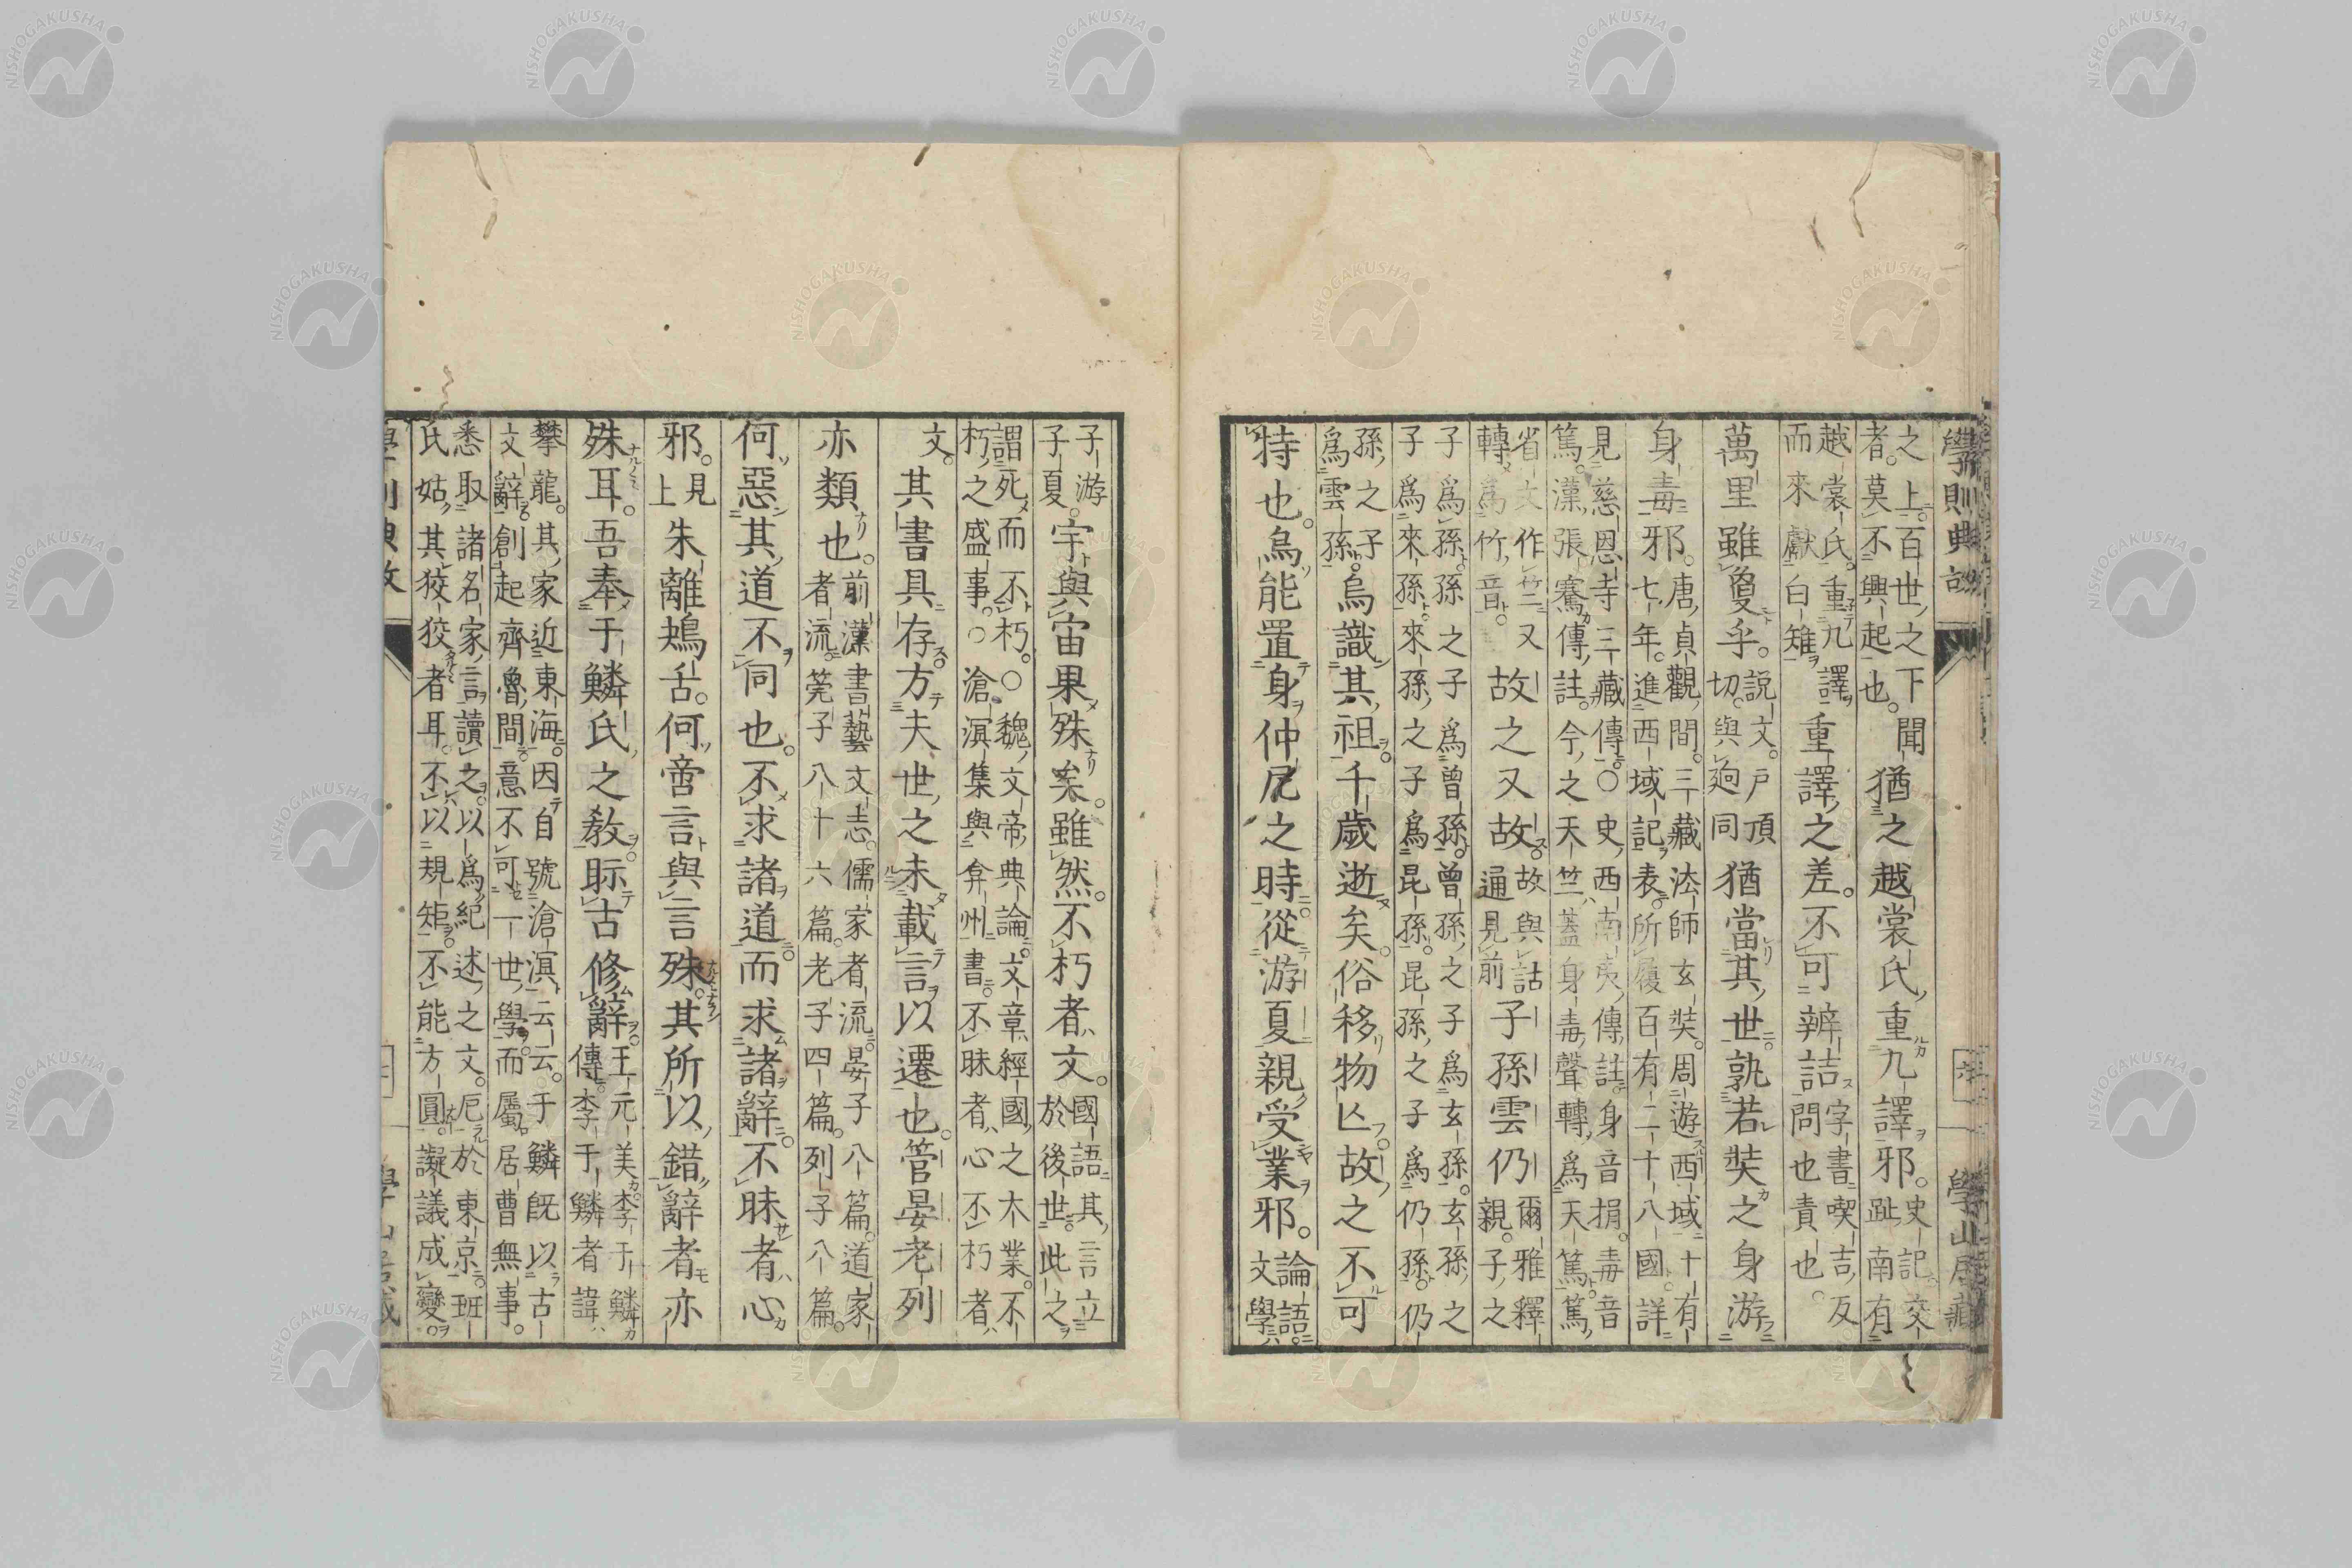 學則典詁
六
學山居藏
之上。百世之下
者。莫不興起也。
聞猶之越裳氏重九譯邪。
史記交
趾南有
越裳氏。重九譯
而來獻白雉
重譯之差。不可辨詰
字書喫吉反
問也責也。
萬里雖敻乎。
說文。戶頂
切。與逈同
猶當其世孰若奘之身游
身毒邪。
唐貞觀間。三藏法師玄奘。周游西域十有
七年。進西域記表所履百有二十八國。詳
見慈恩寺三藏傳。○史西南夷傳註。身音捐。毒音
篤。漢張騫傳註。今之天竺。蓋身毒聲轉爲天篤篤
省文作竺又
轉爲竹音。
故之又故。
故與詁
通見前
子孫雲仍
爾雅釋
親。子之
子爲孫。孫之子爲曾孫。曾孫之子爲玄孫。玄孫之
子爲來孫。來孫之子爲昆孫。昆孫之子爲仍孫。仍
孫之子
爲雲孫。
烏識其祖。千歲逝矣。俗移物亾。故之不可
恃也。烏能置身仲尼之時。從游夏親受業邪。
論語。
文學
子游
子夏。
宇與宙果殊矣。雖然。不朽者文。
國語其言立
於後世。此之
謂死而不朽。○魏文帝典論。文章經國之大業。不
朽之盛事。○滄溟集與弇州書。不昧者心不朽者
文。
其書具存方夫世之未載言以遷也。管晏老列
亦類也。
前漢書藝文志。儒家者流。晏子八篇。道家
者流。筦子八十六篇。老子四篇。列子八篇。
何惡其道不同也。不求諸道而求諸辭。不昧者心
邪。
見
上
朱離鴂舌。何啻言與言殊。其所以錯辭者亦
殊耳。吾奉于鱗氏之敎眎古修辭。
王元美李于鱗
傳。李于鱗者諱
攀龍。其家近東海。因自號滄溟云云。于鱗既以古
文辭創起齊魯間。意不可一世學。而屬居曹無事。
悉取諸名家言讀之。以爲紀述之文。厄於東京。班
氏姑其狡狡者耳。不以規矩。不能方圓。擬議成變。